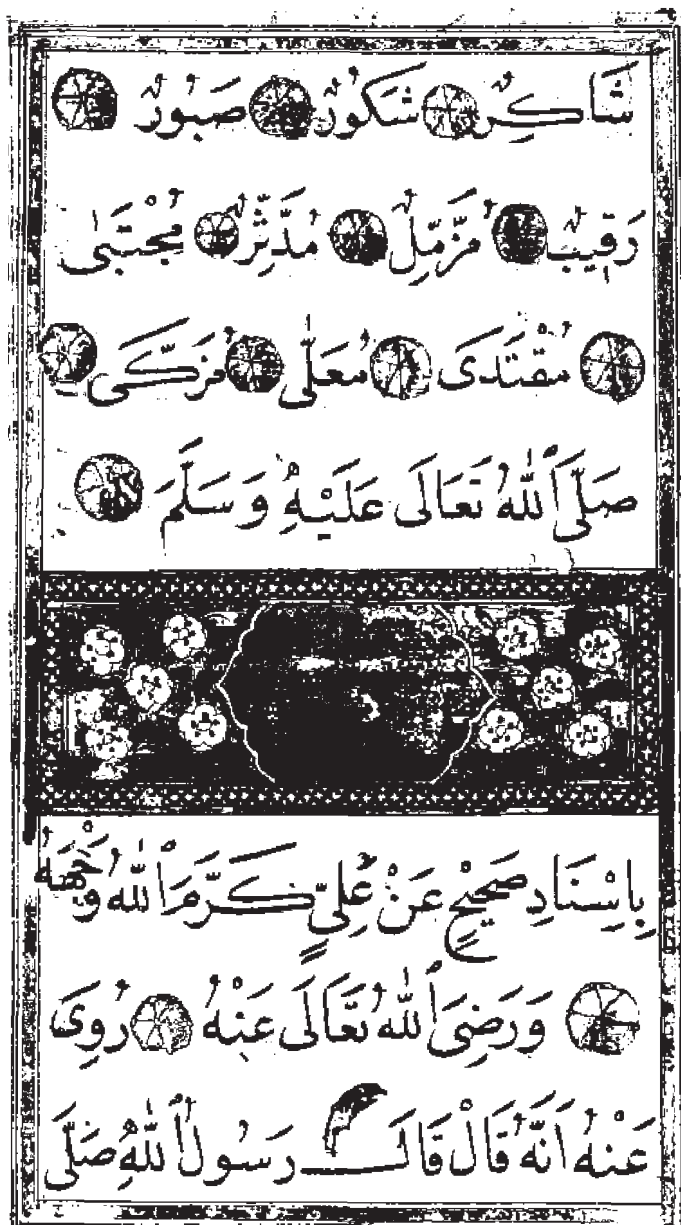 شَاكِرٌ شَكُورٌ صَبُورٌ
رَقِيبٌ مُزَّمِّلٌ مُدَّثِّرٌ مُجْتَبٰى
مُقْتَدَى مُعَلّٰى مُزَكَّى
صَلَّى ٱللّٰهُ تَعَالَى عَلَيْهِ وَسَلَّمَ
بِاِسْنَادِ صَحِيْحٍ عَنْ عَلِيٍّ كَرَّمَ ٱللّٰهُ وَجْهَهُ
وَرَضِىَ ٱللّٰهُ تَعَالَى عَنْهُ رُوِىَ
عَنْهُ اَنَّهُ قَالْ قَالَ رَسُولُ ٱللّٰهِ صَلَّى